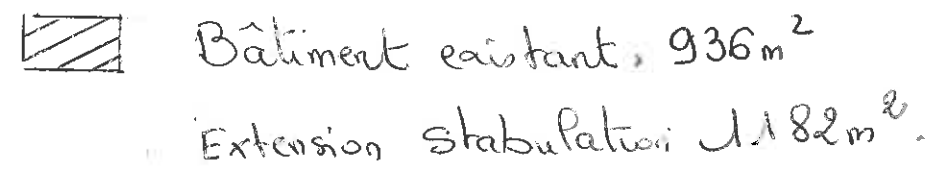 Bâtiment existant, 936 m²
Extension stabulation 1182 m².